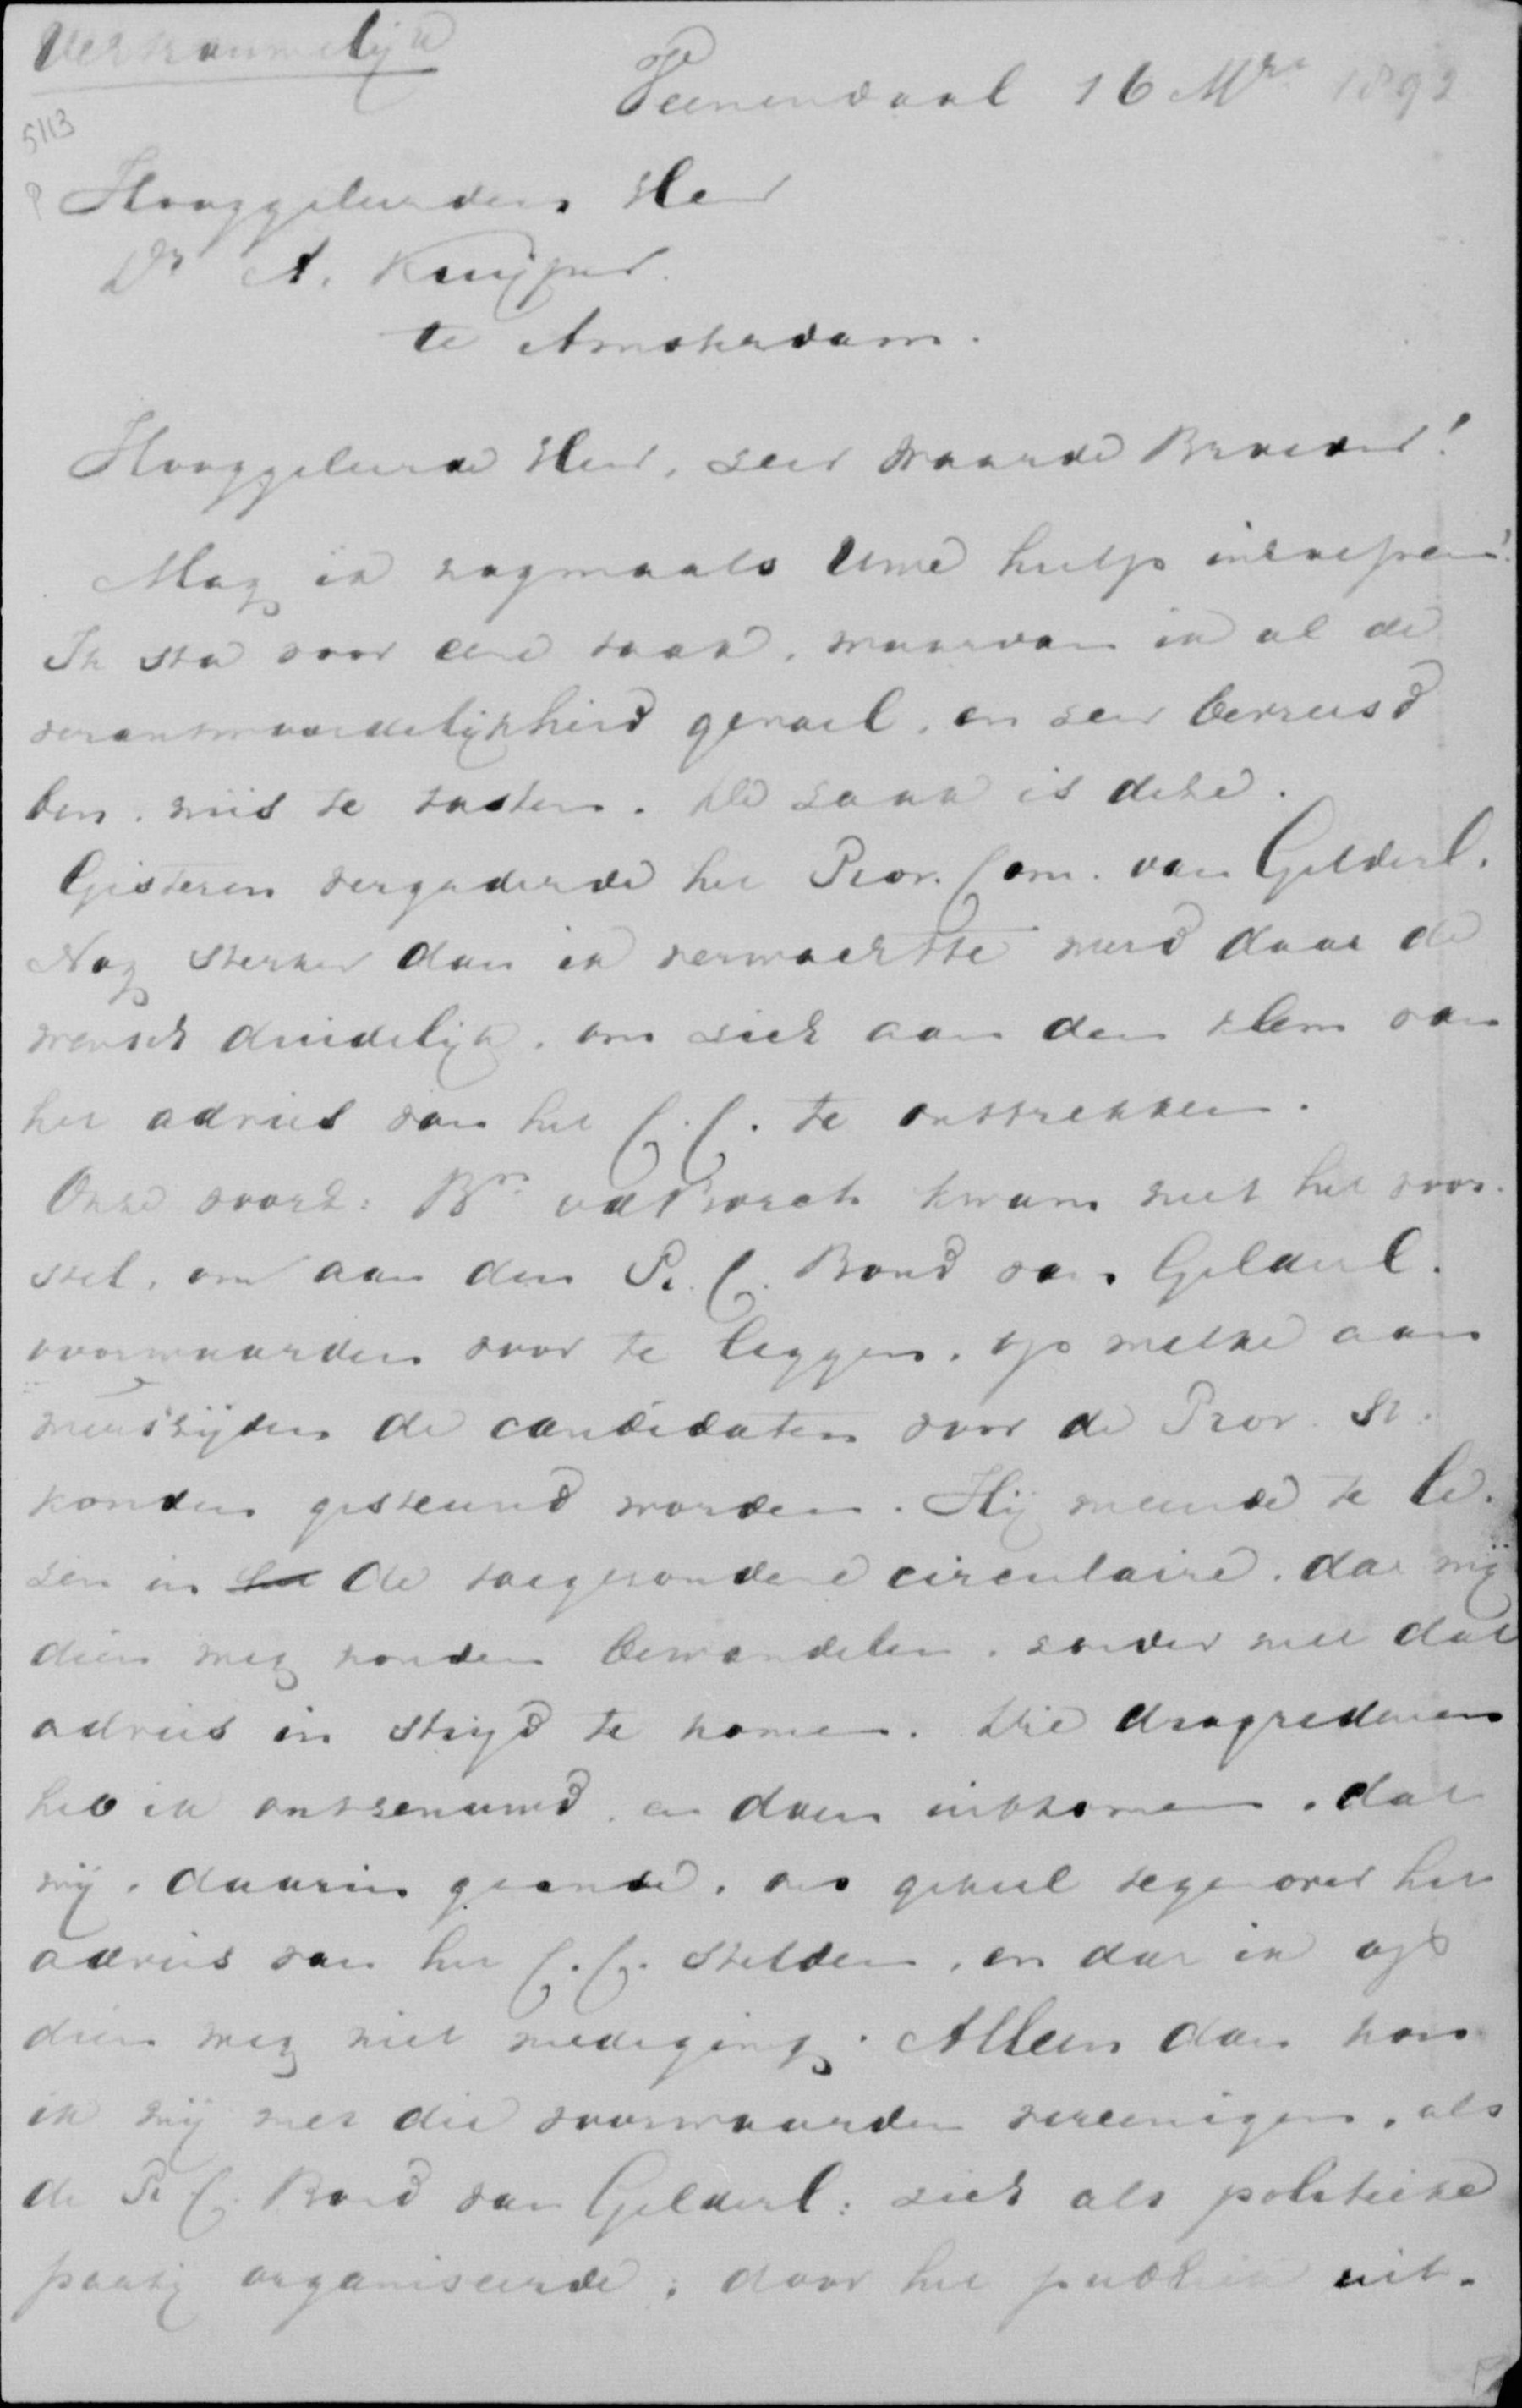 Vertrouwelijk
Veenendaal 16 Mrt 1892
5113
Hooggeleerden Heer
Dr A. Kuijper.
te Amsterdam.
Hooggeleerde Heer, zeer waarde Broeder!
Mag ik nogmaals Uwe hulp inroepen!
Ik sta voor eene taak, waarvan ik al de
verantwoordelijkheid gevoel, en zeer bevreesd
ben, mis te tasten. De zaak is deze.
Gisteren vergaderde het Prov. Com. van Gelderl.
Nog sterker dan ik verwachtte werd daar de
wensch duidelijk, om zich aan den klem van
het advies van het C.C. te onttrekken.
Onze voorz: Bn vd Borch kwam met het voor-
stel, om aan den Pr. C. Bond van Gelderl.
voorwaarden voor te leggen, op welke aan
weerszijden de candidaten voor de Prov. St:
konden gesteund worden. Hij meende te le-
zen in de toegezondene circulaire, dat wij
dien weg konden bewandelen, zonder met dat
advies in strijd te komen. Die drogredenen
heb ik ontzenuwd, en doen uitkomen, dat
wij, daarin gaande, ons geheel tegenover het
advies van het C.C. stelden, en dat ik op
dien weg niet medeging. Alleen dan kon
ik mij met die voorwaarden vereenigen, als
de Pr C. Bond van Gelderl: zich als politieke
partij organiseerde; door het publiek uit-